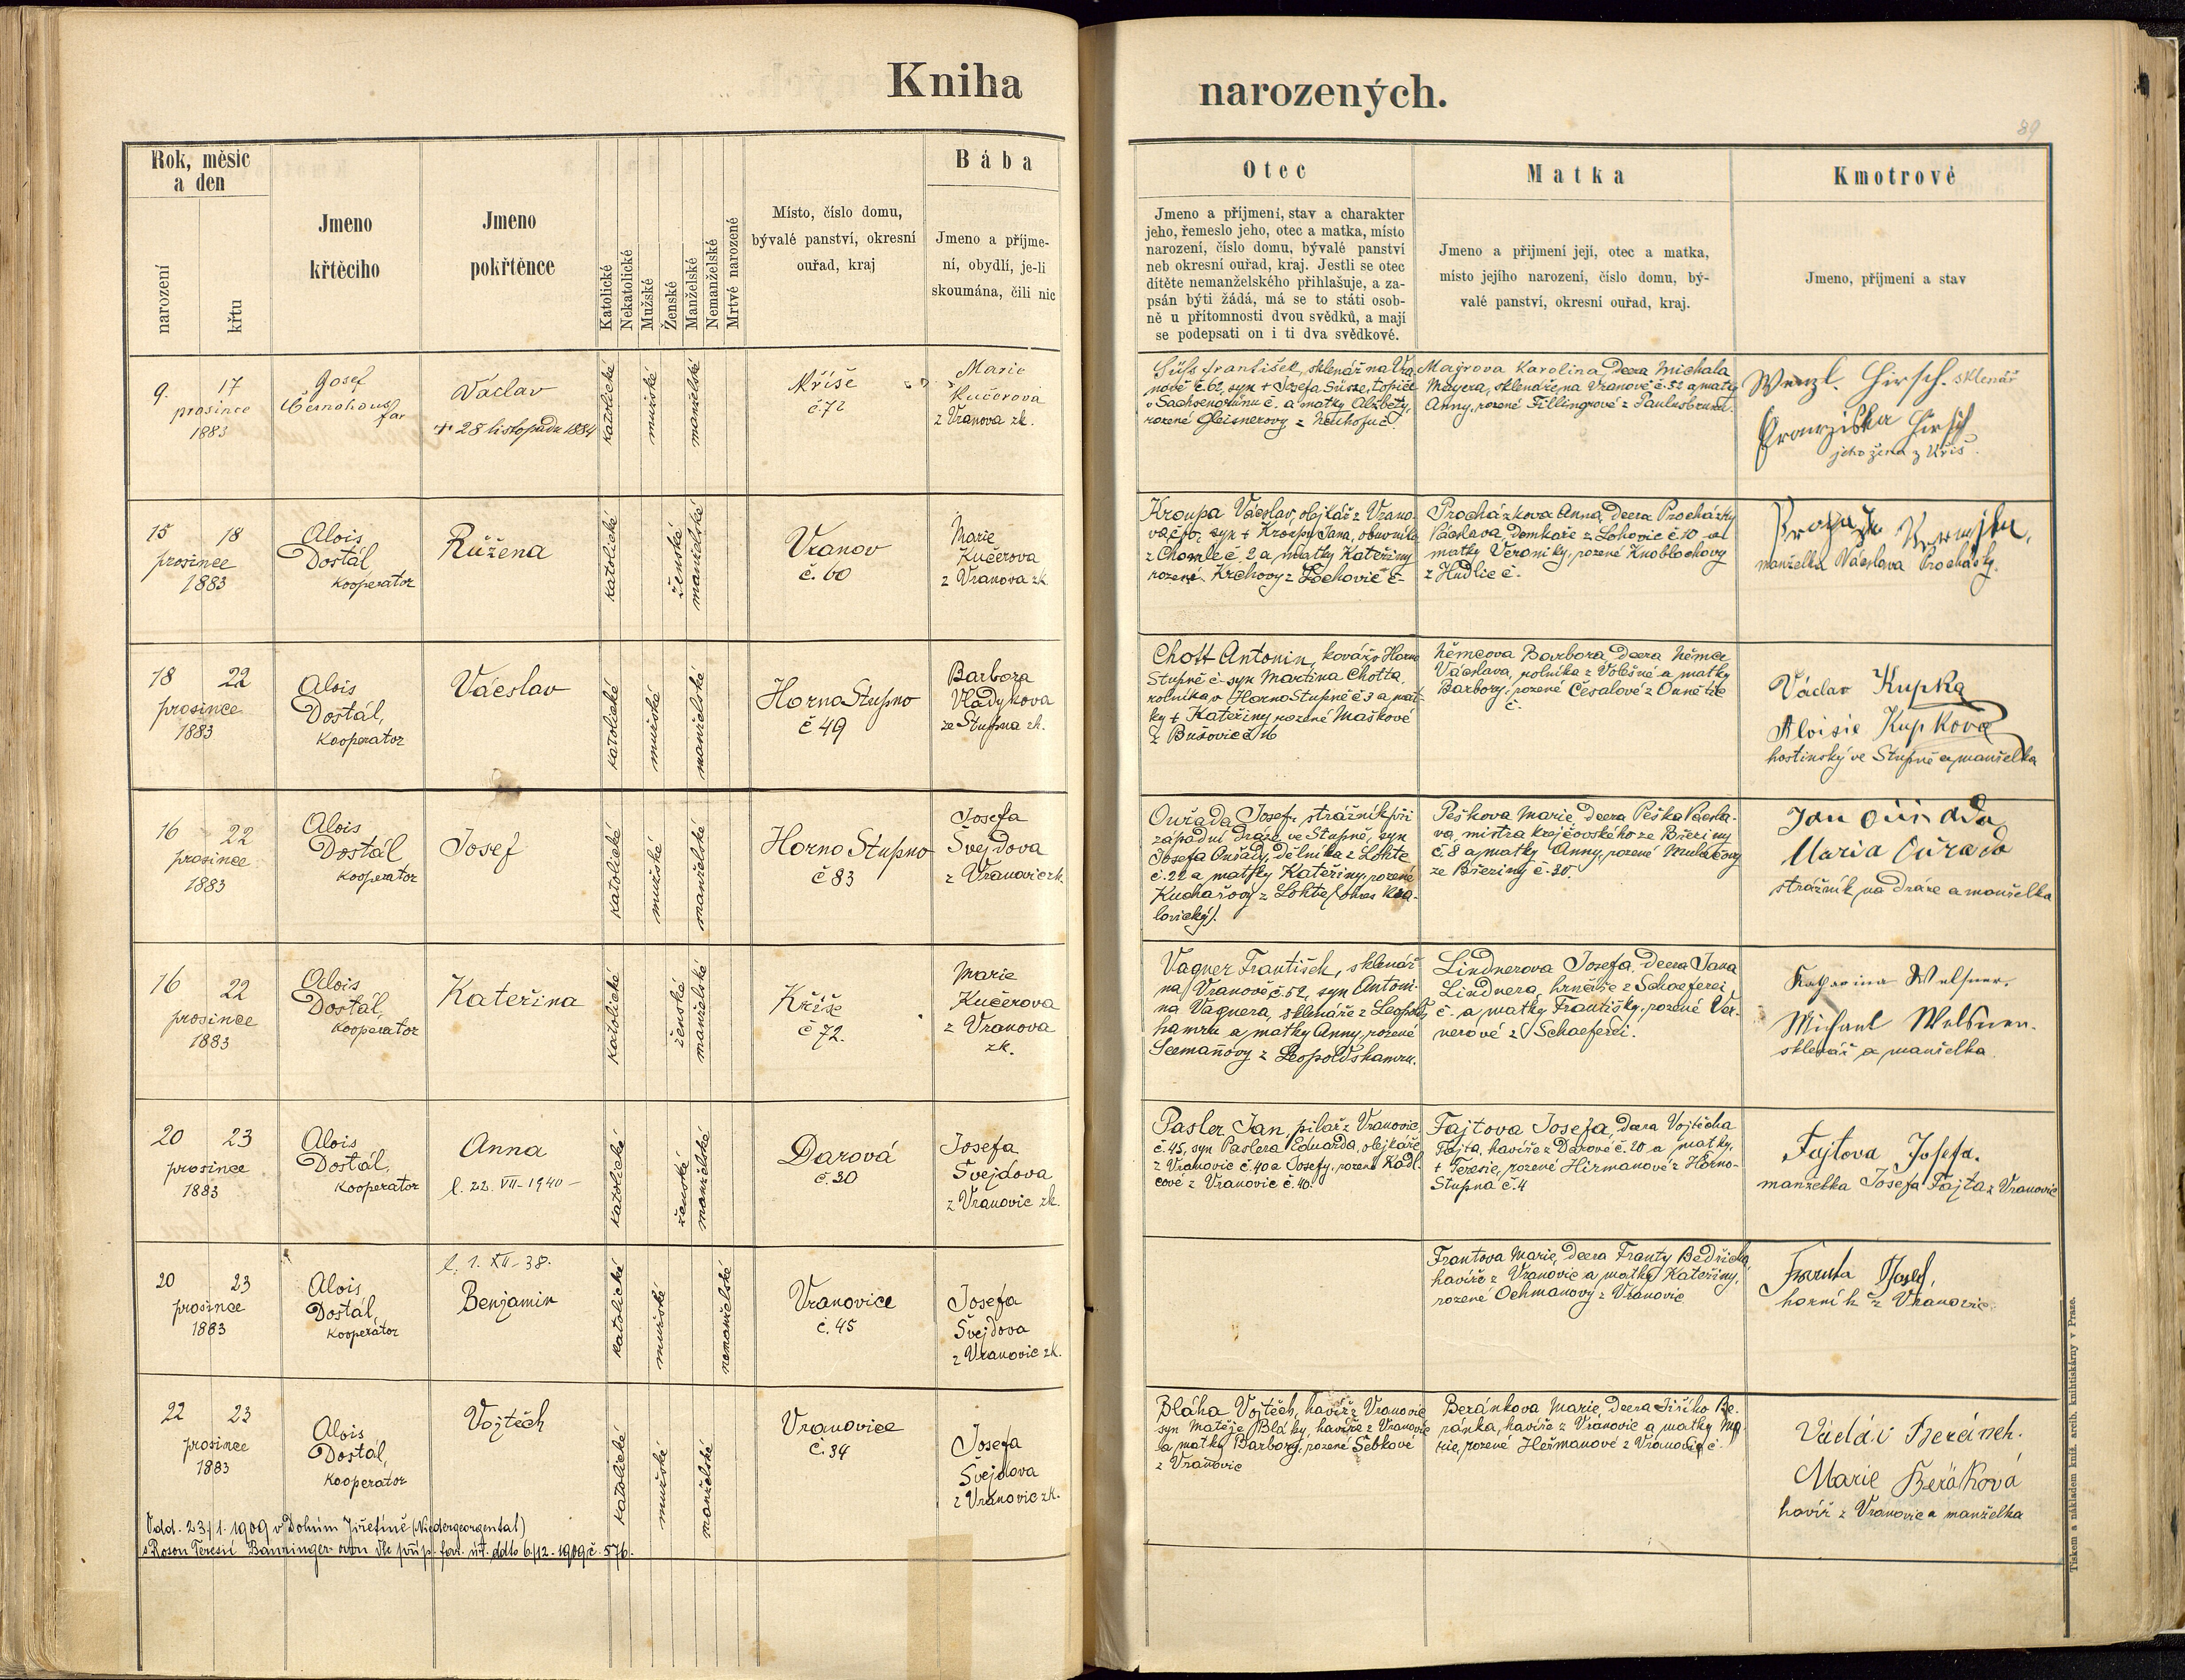 Kniha
narozených.
89
Rok, měsíc
a den
narození
křtu
Jmeno
křtěcího
Jmeno
pokřtěnce
Katolické
Nekatolické
Mužské
Ženské
Manželské
Nemanželské
Mrtvé narozené
Místo, číslo domu,
bývalé panství, okresní
ouřad, kraj
Bába
Jmeno a příjme-
ní, obydlí, je-li
skoumána, čili nic
Otec
Jmeno a příjmení, stav a charakter
jeho, řemeslo jeho, otec a matka, místo
narození, číslo domu, bývalé panství
neb okresní ouřad, kraj. Jestli se otec
dítěte nemanželského přihlašuje, a za-
psán býti žádá, má se to státi osob-
ně u přítomnosti dvou svědků, a mají
se podepsati on i ti dva svědkové.
Matka
Jmeno a příjmení její, otec a matka,
místo jejího narození, číslo domu, bý-
valé panství, okresní ouřad, kraj.
Kmotrové
Jmeno, příjmení a stav
9. 17
prosince
1883
Josef
Černohaus
far
Václav
+ 28 listopadu 1884
katolické
mužské
manželské
Kříše
č. 72
Marie
Kučerova
z Vranova zk.
Süss František, sklenář na Vra-
nově č. 62, syn + Josefa Süsse,
v Sachsengrünu č. a matky Alžběty,
rozené Gleisnerovy z Neuhofu č.
Majrova Karolina, dcera Michala
Mayera, sklenáře na Vranově č. 52 a matky
Anny, rozené Fillingrové z Paulusbrunu.
Wenzl. Hirsch. sklenář
Franziska Hirsch
jeho žena z Kříš.
15 18
prosince
1883
Alois
Dostál,
kooperator
Růžena
katolické
ženské
manželské
Vranov
č. 60
Marie
Kučerova
z Vranova zk.
Kroupa Václav, olejkář z Vrano-
va č. 60. syn + Kroupy Jana, obuvníka
z Chomle č. 2 a matky Kateřiny
rozené Krchovy z Lochovic č.
Procházkova Anna, dcera Procházky
Václava, domkáře z Lohovic č. 10 a
matky Veroniky, rozené Knoblochovy
z Hudlic č.
manželka Václava Procházky.
18 22
prosince
1883
Alois
Dostál,
kooperator
Václav
katolické
mužské
manželské
Horno Stupno
č 49
Barbora
Vladykova
ze Stupna zk.
Chott Antonin, kovář v Horno
Stupně č. syn Martina Chotta,
rolníka v Horno Stupně č 3 a mat-
ky + Kateřiny rozené Maškové
z Bušovic č 16
Němcova Barbora, dcera Němce
Václava, rolníka z Volešné a matky
Barbory, rozené Česalové z
č.
Václav Kupka
Aloisie Kupkova
hostinský ve Stupně a manželka
16 22
prosince
1883
Alois
Dostál
kooperator
Josef
katolické
mužské
manželské
Horno Stupno
č 83
Josefa
Švejdova
z Vranovic zk.
Ouřada Josef, strážník při
západní dráze ve Stupně, syn
Josefa Ouřady, dělníka z Lohte
č. 22 a matky Kateřiny, rozené
Kuchařovy z Lohte (okres Kra-
lovický).
Peškova Marie, dcera Peška Václa-
va, mistra krejčovského ze Březiny
č. 8 a matky Anny, rozené Mulačovy
ze Březiny č. 20.
Jan Ouřada
Maria Ouřada
strážník na dráze a manželka
16 22
prosince
1883
Alois
Dostál,
kooperator
Kateřina
katolické
ženské
manželské
Kříše
č 72.
Marie
Kučerova
z Vranova
zk.
Vagner František, sklenář
na Vranově č. 52, syn Antoni-
na Vagnera, sklenáře z Leopolds-
hamru a matky Anny, rozené
Seemañovy z Leopoldshamru.
Lindnerova Josefa, dcera Jana
Lindnera, hrnčíře z Schaeferei,
č. a matky Františky, rozené Ver-
nerové z Schaeferei.
Katharina
Michael
sklenář a manželka.
20 23
prosince
1883
Alois
Dostál,
kooperator
Anna
l. 22. VII - 1940 -
katolické
ženské
manželské
Darová
č. 20
Josefa
Švejdova
z Vranovic zk.
Pasler Jan, pilař z Vranovic
č. 45, syn Paslera Eduarda, olejkáře
z Vranovic č. 40 a Josefy, rozené Kádl-
cové z Vranovic č. 40.
Fajtova Josefa, dcera Vojtěcha
Fajta, havíře z Darové č. 20 a matky
+ Terezie, rozené Heřmanové z Horno-
Stupna č. 4
Fajtova Josefa.
manželka Josefa Fajta z Vranovic
20 23
prosince
1883
Alois
Dostál,
kooperátor
l. 1. XII - 38.
Benjamin
katolické
mužské
nemanželské
Vranovice
č. 45
Josefa
Švejdova
z Vranovic zk.
Frantova Marie, dcera Franty Bedřicha
havíře z Vranovic a matky Kateřiny,
rozené Ochmanovy z Vranovic
Franta Josef,
horník z Vranovic.
22 23
prosince
1883
Alois
Dostál,
kooperator
Vojtěch
katolické
mužské
manželské
Vranovice
č. 34
Josefa
Švejdova
z Vranovic zk.
Bláha Vojtěch, havíř z Vranovic
syn Matěje Bláhy, havíře z Vranovic
a matky Barbory, rozené Šebkové
z Vranovic
Beránkova Marie, dcera Jiřího Be-
ránka, havíře z Vranovic a matky Ma-
rie, rozené Heřmanové z Vranovic č.
Beránek.
Marie Beráková
havíř z Vranovic a manželka
Odd. 23/1. 1909 v Dolním Jiřetíně (Niedergeorgental)
s Rosou Teresií dle příp. far. úř. ddto 6/12. 1909 č. 576.
Tiskem a nákladem kníž. arcib. knihtiskárny v Praze.